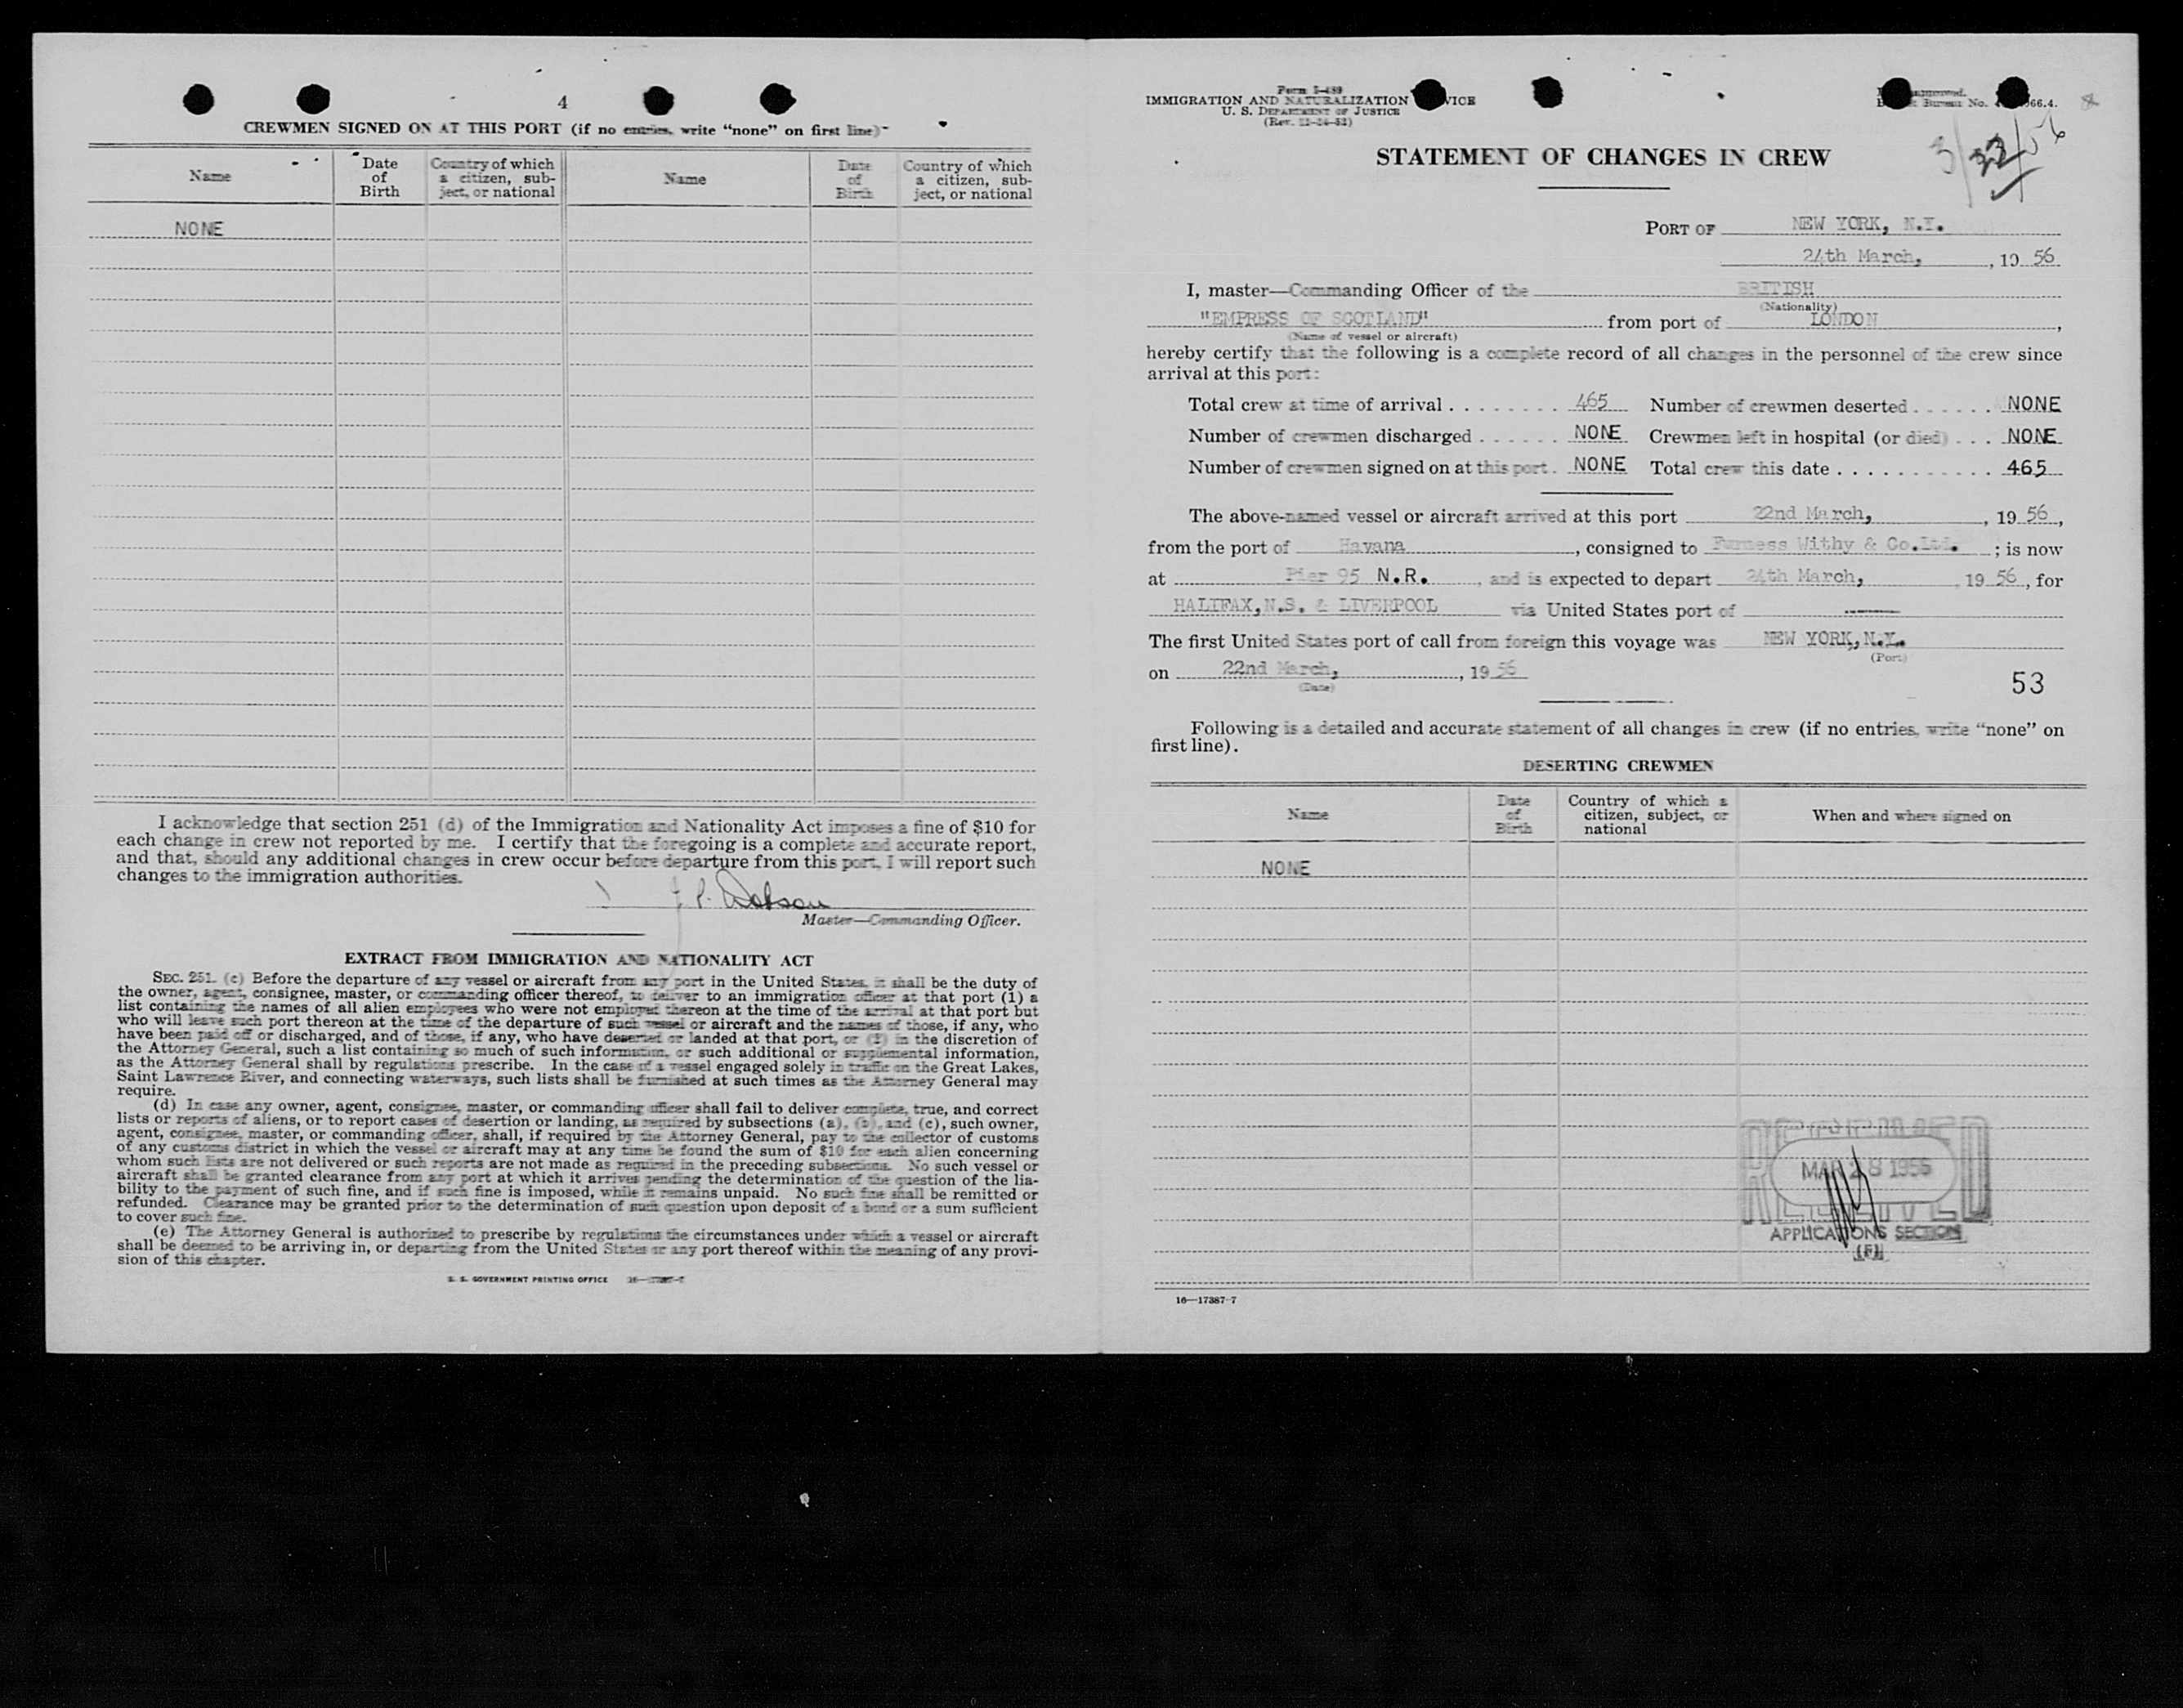 4
CREWMEN SIGNED ON AT THIS PORT (if no entries, write “none” on first line)
Name
Date of Birth
Country of which a citizen, subject, or national
Name
Date of Birth
Country of which a citizen, subject, or national
NONE
I acknowledge that section 251 (d) of the Immigration and Nationality Act imposes a fine of $10 for
each change in crew not reported by me. I certify that the foregoing is a complete and accurate report,
and that, should any additional changes in crew occur before departure from this port, I will report such
changes to the immigration authorities.
J. P. Dobson
Master—Commanding Officer.
EXTRACT FROM IMMIGRATION AND NATIONALITY ACT
SEC. 251. (c) Before the departure of any vessel or aircraft from any port in the United States, it shall be the duty of
the owner, agent, consignee, master, or commanding officer thereof, to deliver to an immigration officer at that port (1) a
list containing the names of all alien employees who were not employed thereon at the time of the arrival at that port but
who will leave such port thereon at the time of the departure of such vessel or aircraft and the names of those, if any, who
have been paid off or discharged, and of those, if any, who have deserted or landed at that port, or (2) in the discretion of
the Attorney General, such a list containing so much of such information, or such additional or supplemental information,
as the Attorney General shall by regulations prescribe. In the case of a vessel engaged solely in traffic on the Great Lakes,
Saint Lawrence River, and connecting waterways, such lists shall be furnished at such times as the Attorney General may
require.
(d) In case any owner, agent, consignee, master, or commanding officer shall fail to deliver complete, true, and correct
lists or reports of aliens, or to report cases of desertion or landing, as required by subsections (a), (b), and (c), such owner,
agent, consignee, master, or commanding officer, shall, if required by the Attorney General, pay to the collector of customs
of any customs district in which the vessel or aircraft may at any time be found the sum of $10 for each alien concerning
whom such lists are not delivered or such reports are not made as required in the preceding subsections. No such vessel or
aircraft shall be granted clearance from any port at which it arrives pending the determination of the question of the lia-
bility to the payment of such fine, and if such fine is imposed, while it remains unpaid. No such fine shall be remitted or
refunded. Clearance may be granted prior to the determination of such question upon deposit of a bond or a sum sufficient
to cover such fine.
(e) The Attorney General is authorized to prescribe by regulations the circumstances under which a vessel or aircraft
shall be deemed to be arriving in, or departing from the United States or any port thereof within the meaning of any provi-
sion of this chapter.
U. S. GOVERNMENT PRINTING OFFICE 16—17387-7
Form I-489
IMMIGRATION AND NATURALIZATION
U. S. DEPARTMENT OF JUSTICE
(Rev. 12-24-52)
approved.
Bureau No. 66.4.
3/22/56
STATEMENT OF CHANGES IN CREW
PORT OF NEW YORK, N.Y.
24th March, , 19 56
I, master—Commanding Officer of the BRITISH
(Nationality)
"EMPRESS OF SCOTLAND" from port of LONDON ,
(Name of vessel or aircraft)
hereby certify that the following is a complete record of all changes in the personnel of the crew since
arrival at this port:
Total crew at time of arrival . . . . . . . . 465 Number of crewmen deserted . . . . . . NONE
Number of crewmen discharged . . . . . . NONE Crewmen left in hospital (or died) . . . NONE
Number of crewmen signed on at this port . NONE Total crew this date . . . . . . . . . . . 465
The above-named vessel or aircraft arrived at this port 22nd March, , 19 56 ,
from the port of Havana , consigned to Furness Withy & Co.Ltd. ; is now
at Pier 95 N.R. , and is expected to depart 24th March, 19 56 , for
HALIFAX,N.S. & LIVERPOOL via United States port of ——
The first United States port of call from foreign this voyage was NEW YORK, N.Y.
(Port)
on 22nd March, , 19 56
(Date)
53
Following is a detailed and accurate statement of all changes in crew (if no entries, write “none” on
first line).
DESERTING CREWMEN
Name
Date of Birth
Country of which a citizen, subject, or national
When and where signed on
NONE
RECEIVED
MAR 28 1956
APPLICATIONS SECTION
16—17387-7